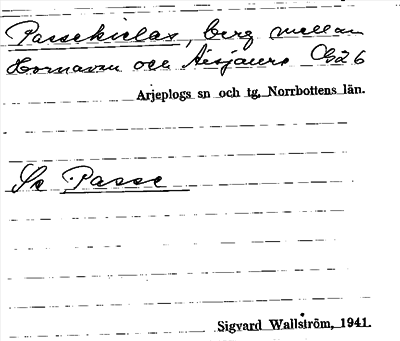 Passekielas, berg mellan
Hornavan och Aisjaure Ö26
Arjeplogs sn och tg, Norrbottens län.
Se Passe
Sigvard Wallström, 1941.